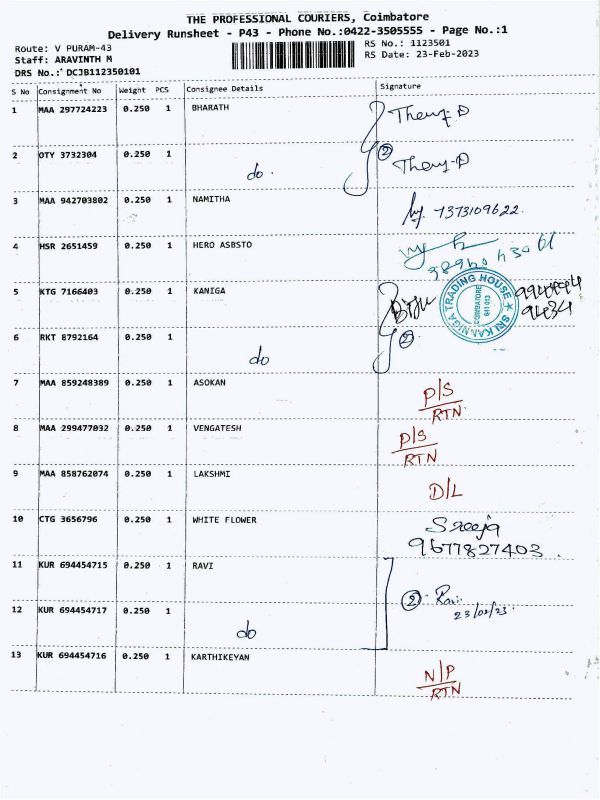 THE PROFESSIONAL COURIERS, Coimbatore
Delivery Runsheet - P43 - Phone No.:0422-3505555 - Page No.:1
Route: V PURAM-43 RS No.: 1123501
Staff: ARAVINTH M RS Date: 23-Feb-2023
DRS No.: DCJB112350101
S No Consignment No Weight PCS Consignee Details Signature
1 MAA 297724223 0.250 1 BHARATH
2 OTY 3732304 0.250 1 do. ②
3 MAA 942703802 0.250 1 NAMITHA 7373109622.
4 HSR 2651459 0.250 1 HERO ASBSTO
5 KTG 7166403 0.250 1 KANIGA
SRI KANNIGA TRADING HOUSE ★ COIMBATORE 641 013
6 RKT 8792164 0.250 1 do ②
7 MAA 859248389 0.250 1 ASOKAN P/S
RTN
8 MAA 299477032 0.250 1 VENGATESH P/S
RTN
9 MAA 858762074 0.250 1 LAKSHMI D/L
10 CTG 3656796 0.250 1 WHITE FLOWER Sreeja
9677827403
11 KUR 694454715 0.250 1 RAVI
② Ravi
23/02/23
12 KUR 694454717 0.250 1 do
13 KUR 694454716 0.250 1 KARTHIKEYAN N/P
RTN